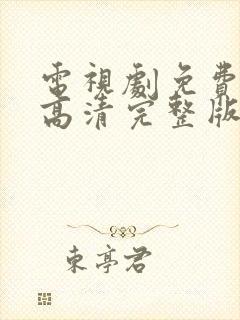 電視劇免費
高清完整版
東亭君